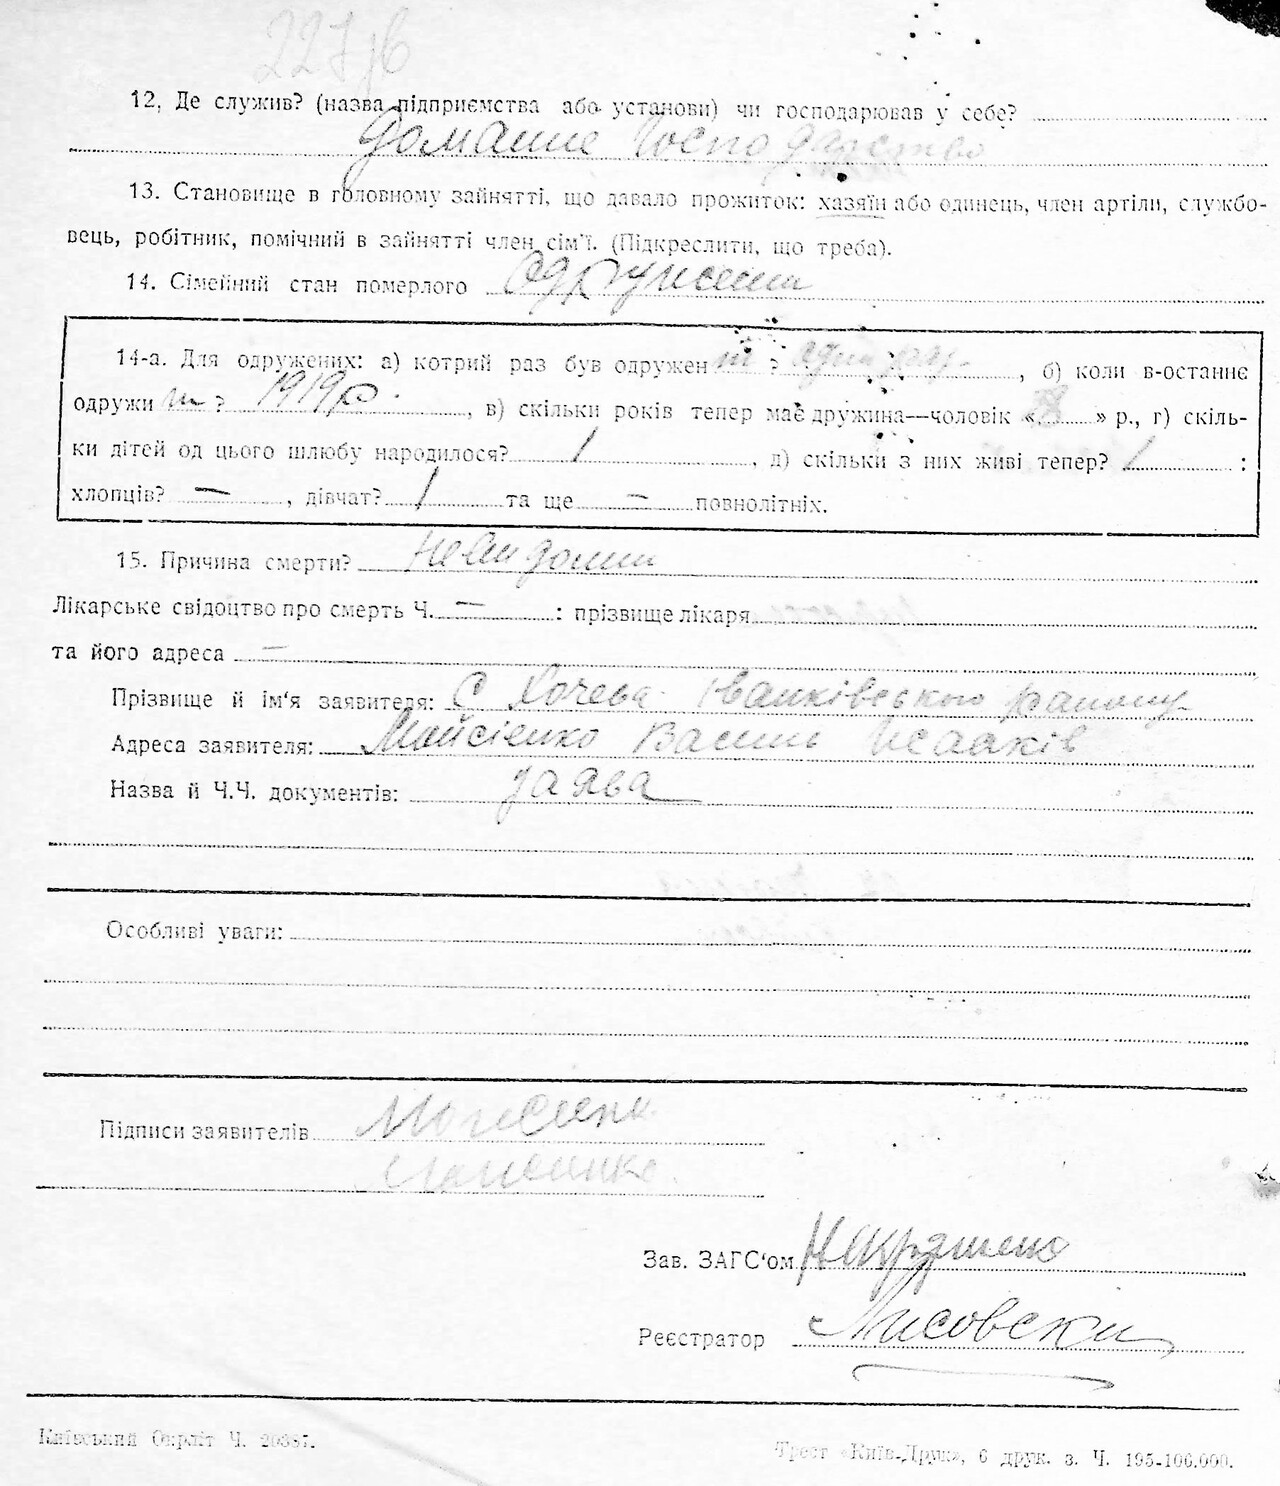 227зв
12. Де служив? (назва підприємства або установи) чи господарював у себе?
домашнє господарство
13. Становище в головному зайнятті, що давало прожиток: хазяїн або одинець, член артіли, службо-
вець, робітник, помічний в зайнятті член сім'ї. (Підкреслити, що треба).
14. Сімейний стан померлого одружений
14-а. Для одружених: а) котрий раз був одружен ? один раз , б) коли в-останнє
одружи ? 1919 р. , в) скільки років тепер має дружина—чоловік « » р., г) скіль-
ки дітей од цього шлюбу народилося? 1 , д) скільки з них живі тепер? 1 :
хлопців? — , дівчат? 1 та ще — повнолітніх.
15. Причина смерти? Невидомий
Лікарське свідоцтво про смерть Ч. — : прізвище лікаря
та його адреса —
Прізвище й ім'я заявителя: С Хочева Іванківського району
Адреса заявителя: Мойсіенко Василь Исааків
Назва й Ч.Ч. документів: заява
Особливі уваги:
Підписи заявителів
Зав. ЗАГС'ом
Реєстратор Лисовский
Київський Окрліт Ч. 20387.
Трест «Київ-Друк», 6 друк. з. Ч. 195-100.000.